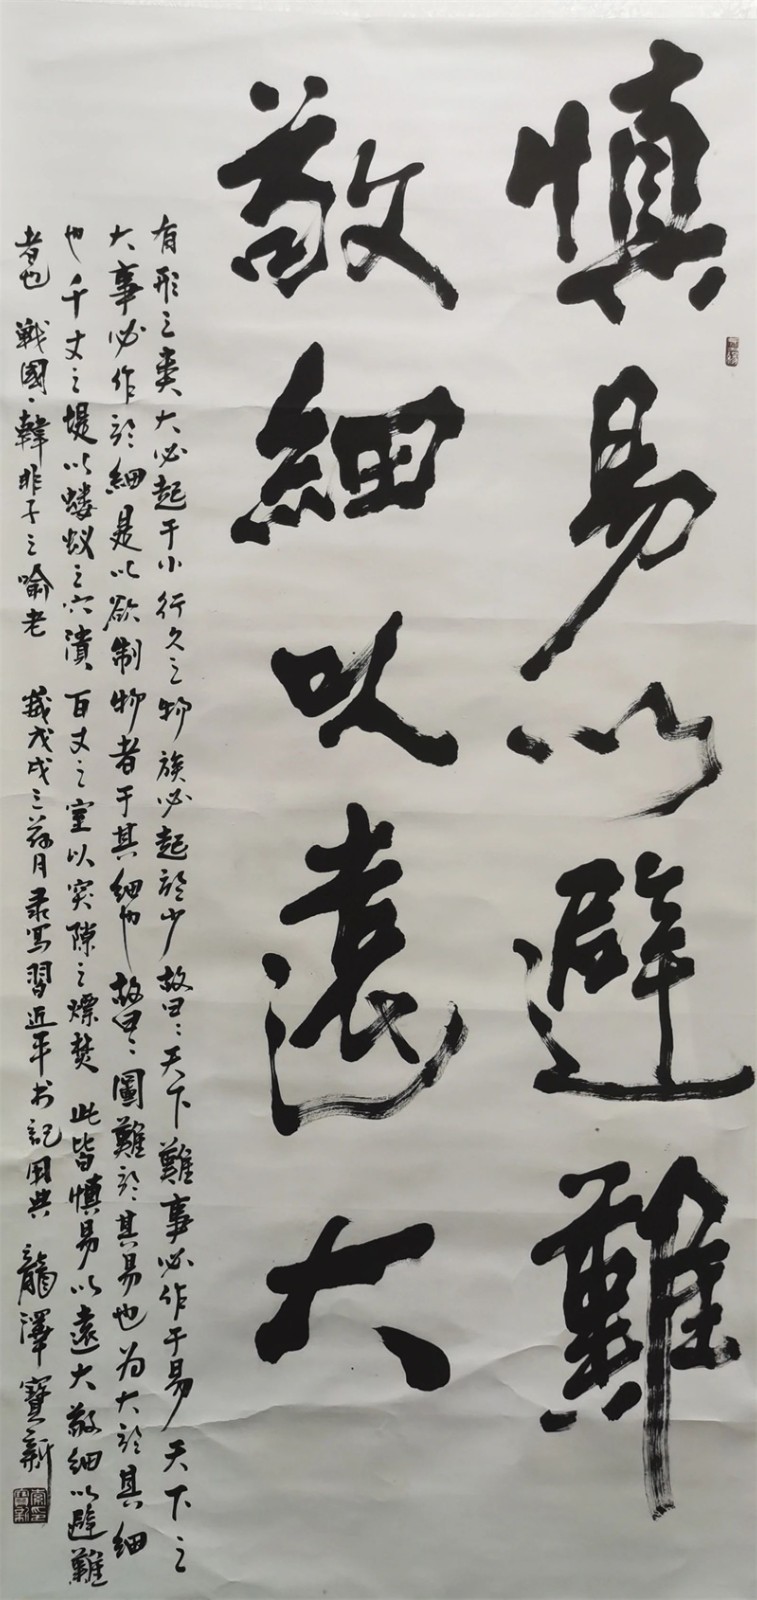 慎易以避難
敬細以遠大
有形之類大必起于小行久之物族必起於少故曰：天下難事必作于易天下之
大事必作於細是以欲制物者于其細也故曰：圖難於其易也为大於其細
也千丈之堤以螻蚁之穴潰百丈之室以突隙之熛焚此皆慎易以遠大敬細以避難
者也戰國·韓非子之喻老歲戊戌三荷月录写習近平书記用典龍澤寶新